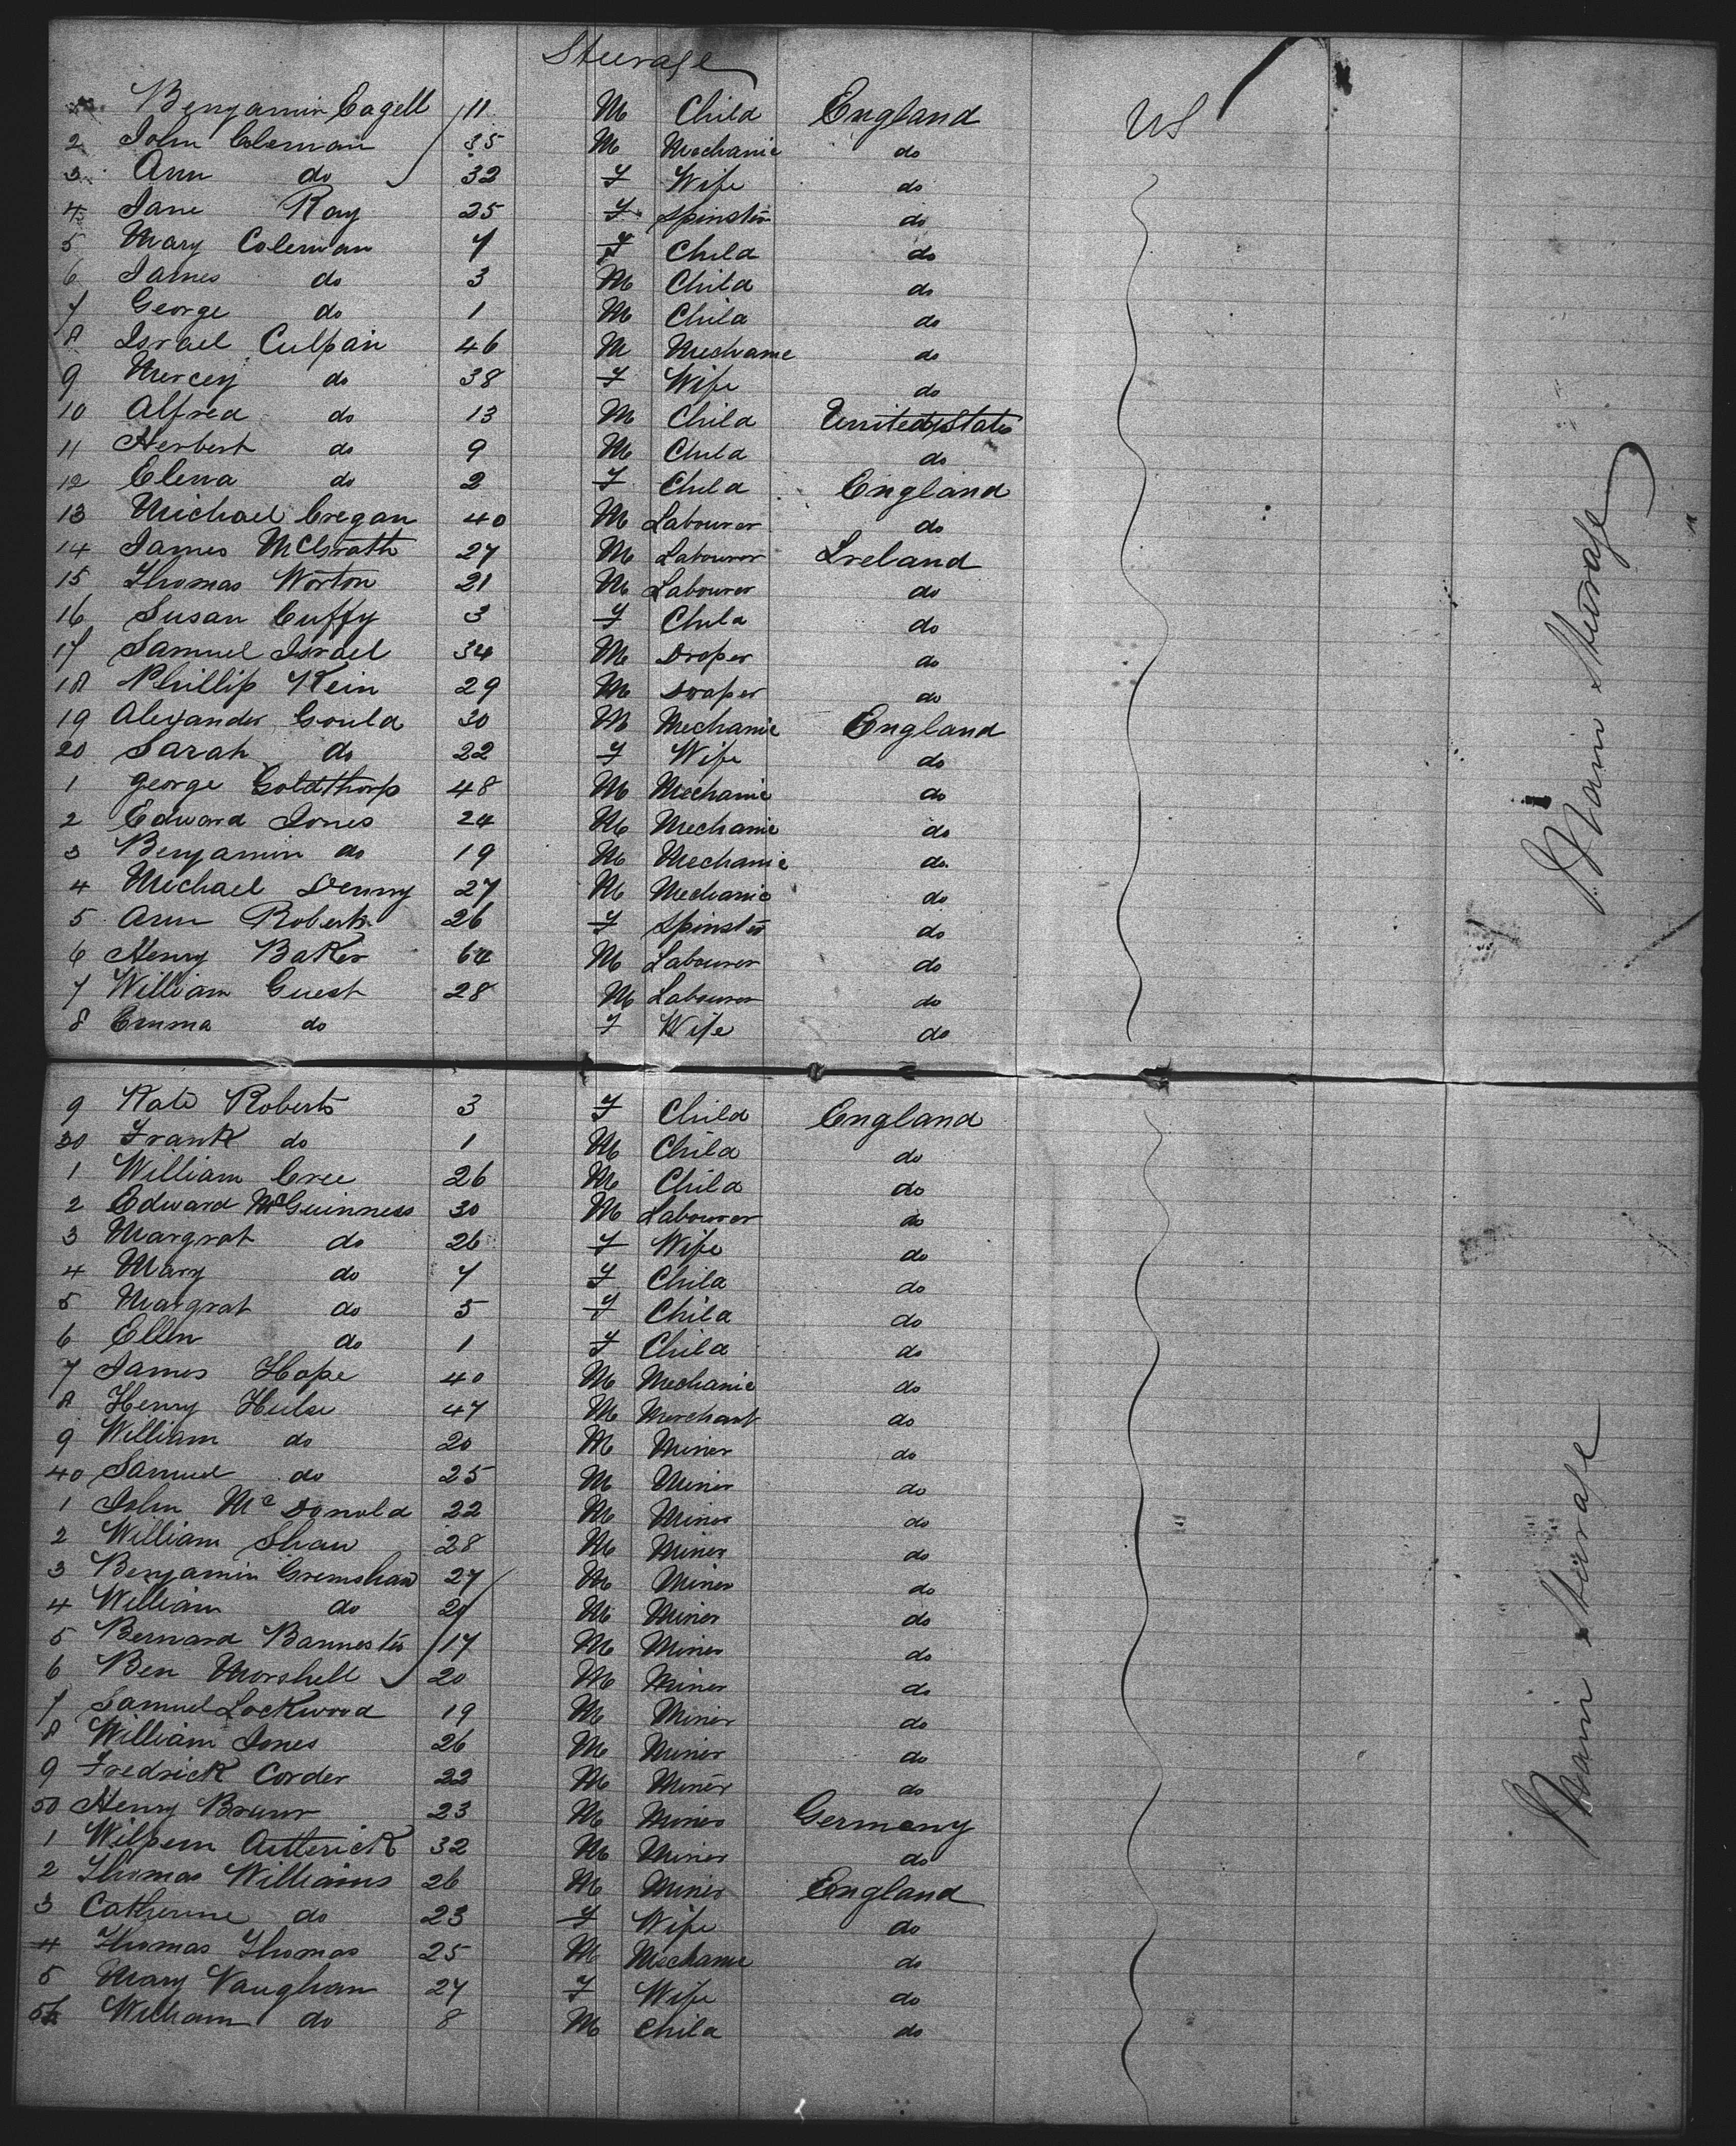 Steerage
Benjamin Cagell 11 M Child England US
2 John Coleman 35 M Mechanic do
3 Ann do 32 F Wife do
4 Jane Ray 25 F Spinster do
5 Mary Coleman 7 F Child do
6 James do 3 M Child do
7 George do 1 M Child do
8 Israel Culpan 46 M Mechanic do
9 Mercey do 38 F Wife do
10 Alfred do 13 M Child United States
11 Herbert do 9 M Child do
12 Elena do 2 F Child England
13 Michael Cregan 40 M Labourer do
14 James McGrath 27 M Labourer Ireland
15 Thomas Worton 21 M Labourer do
16 Susan Cuffy 3 F Child do
17 Samuel Israel 34 M Draper do
18 Phillip Kein 29 M Draper do
19 Alexander Gould 30 M Mechanic England
20 Sarah do 22 F Wife do
1 George Goldthorp 48 M Mechanic do
2 Edward Jones 24 M Mechanic do
3 Benjamin do 19 M Mechanic do
4 Michael Denny 27 M Mechanic do
5 Ann Roberts 26 F Spinster do
6 Henry Baker 64 M Labourer do
7 William Guest 28 M Labourer do
8 Emma do F Wife do
Main Steerage
9 Kate Roberts 3 F Child England
30 Frank do 1 M Child do
1 William Cree 26 M Child do
2 Edward McGuinness 30 M Labourer do
3 Margrat do 26 F Wife do
4 Mary do 7 F Child do
5 Margrat do 5 F Child do
6 Ellen do 1 F Child do
7 James Hope 40 M Mechanic do
8 Henry Hulse 47 M Merchant do
9 William do 20 M Miner do
40 Samuel do 25 M Miner do
1 John McDonald 22 M Miner do
2 William Shaw 28 M Miner do
3 Benjamin Gremshaw 27 M Miner do
4 William do M Miner do
5 Bernard Bannester 17 M Miner do
6 Ben Morshell 20 M Miner do
7 Samuel Lockwood 19 M Miner do
8 William Jones 26 M Miner do
9 Fredrick Corder 22 M Miner do
50 Henry Braur 23 M Miner Germany
1 32 M Miner do
2 Thomas Williams 26 M Miner England
3 Catherine do 23 F Wife do
4 Thomas Thomas 25 M Mechanic do
5 Mary Vaughan 27 F Wife do
56 William do 8 M Child do
Main Steerage